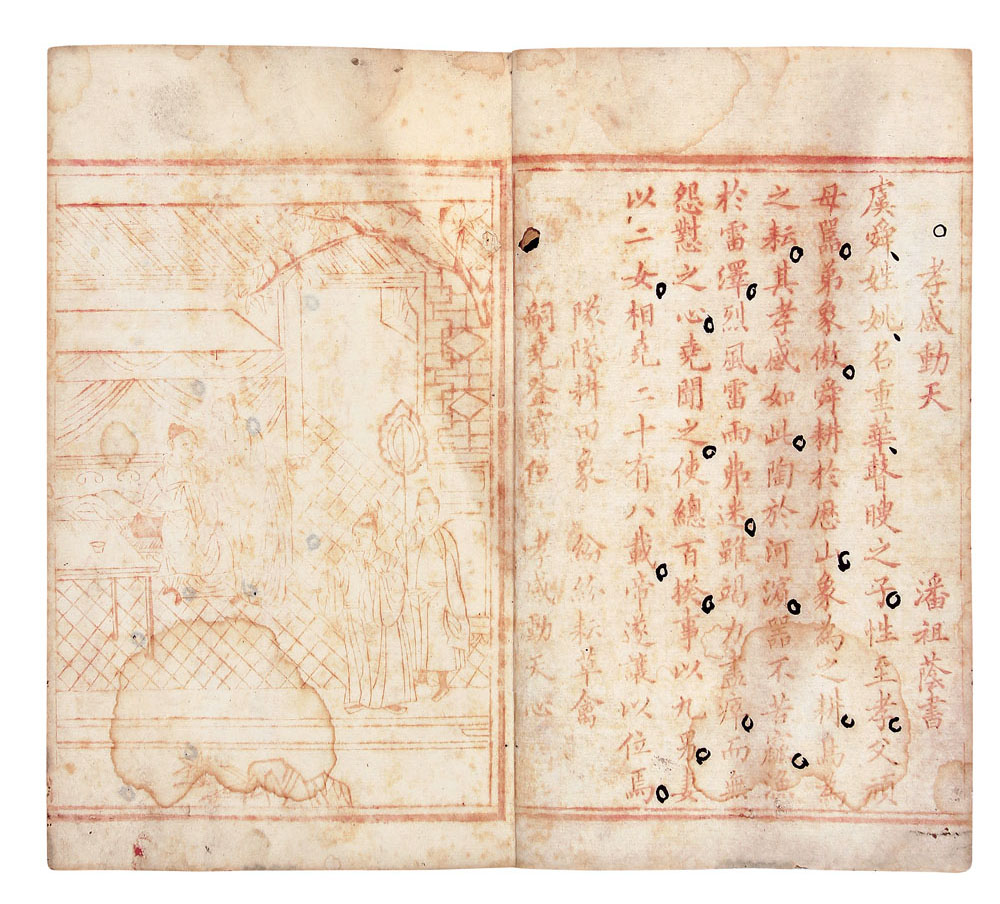 孝感動天 潘祖蔭書
虞舜姓姚名重華瞽瞍之子性至孝父頑
母嚚弟象傲舜耕於歷山象為之耕鳥為
之耘其孝感如此陶於河濱器不苦窳漁
於雷澤烈風雷雨弗迷雖竭力盡瘁而無
怨懟之心堯聞之使總百揆事以九男女
以二女相堯二十有八載帝遂讓以位焉
隊隊耕田象 紛紛耘草禽
嗣堯登寶位 孝感動天心